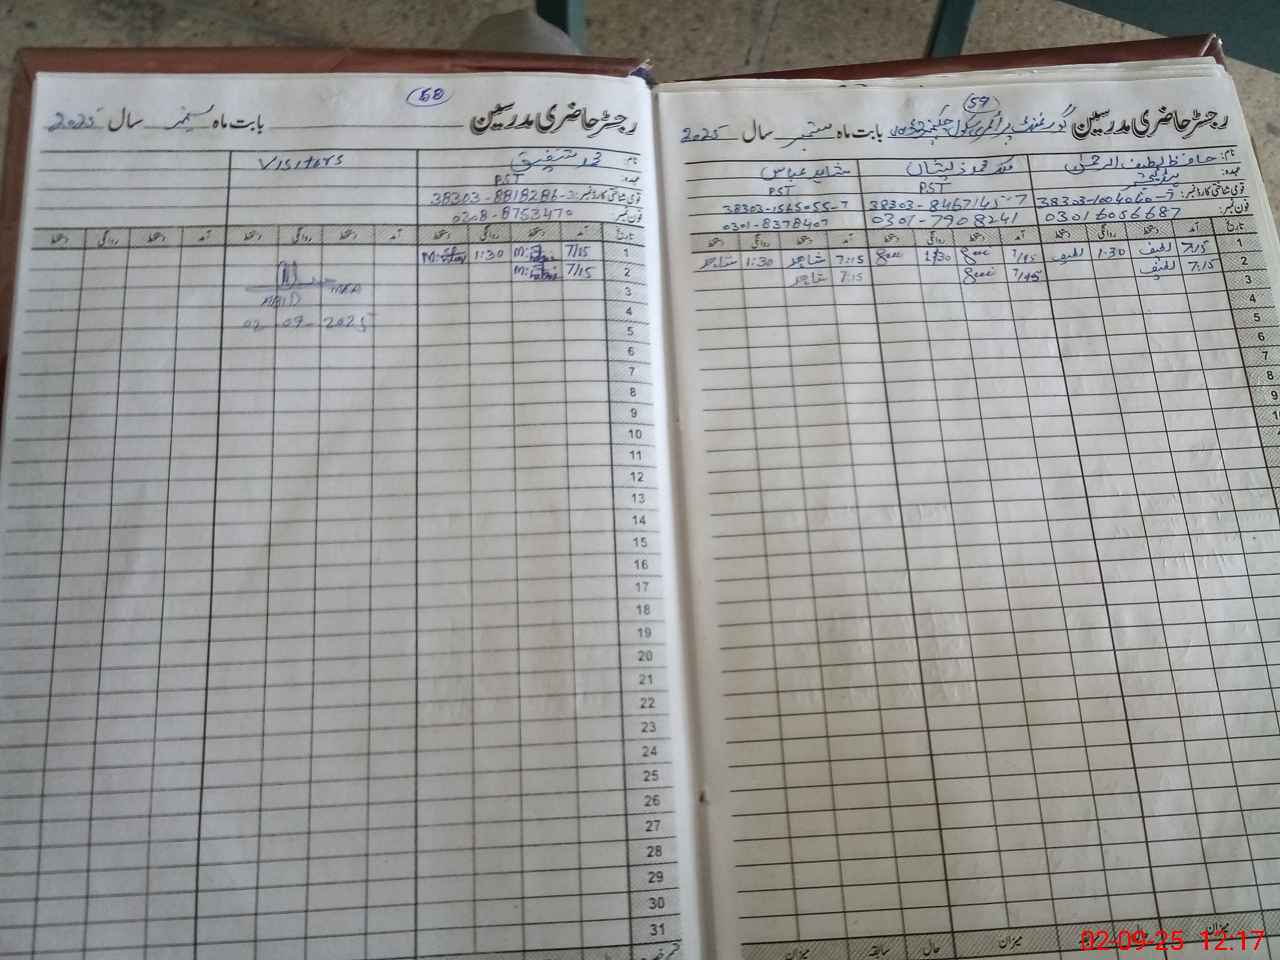 57
رجسٹر حاضری مدرسین گورنمنٹ پرائمری سکول بابت ماہ ستمبر سال 2025
نام: حافظ لطیف الرحمن شاہد عباس
عہدہ: PST PST
قومی شناختی کارڈ نمبر: 38303-1004040-7 38303-8467145-7 38303-1565055-7
فون نمبر: 03016056687 0301-7908241 0301-8378407
تاریخ آمد دستخط روانگی دستخط آمد دستخط روانگی دستخط آمد دستخط روانگی دستخط
1 7:15 لطیف 1:30 لطیف 7/15 1:30 7:15 شاہد 1:30 شاہد
2 7:15 لطیف 7/15 7:15 شاہد
3
4
5
6
7
8
9
میزان میزان حال سابقہ میزان
58
رجسٹر حاضری مدرسین بابت ماہ ستمبر سال 2025
نام: محمد شفیق Visitors
عہدہ: PST
قومی شناختی کارڈ نمبر: 38303-8818286-3
فون نمبر: 0308-8753470
تاریخ آمد دستخط روانگی دستخط آمد دستخط روانگی دستخط آمد دستخط روانگی دستخط
1 7/15 1:30
2 7/15
3
4 02-09-2025
5
6
7
8
9
10
11
12
13
14
15
16
17
18
19
20
21
22
23
24
25
26
27
28
29
30
31
02-09-25 12:17